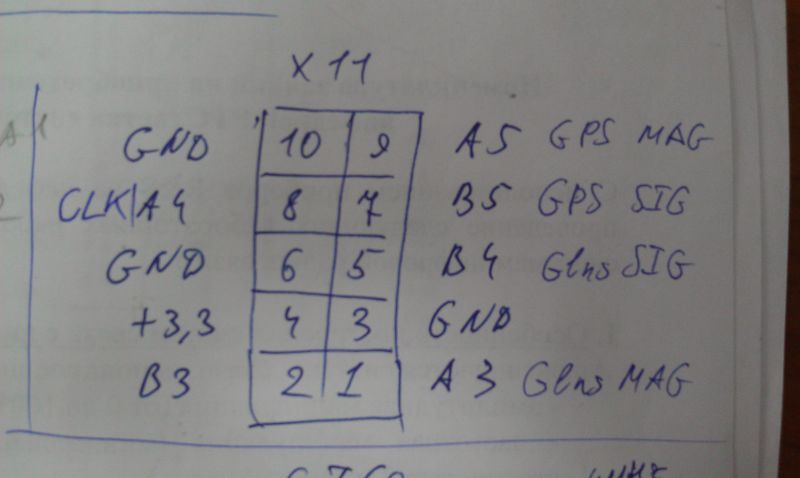 X11
A1 GND 10 9 A5 GPS MAG
CLK|A4 8 7 B5 GPS SIG
GND 6 5 B4 Glns SIG
+3,3 4 3 GND
B3 2 1 A3 Glns MAG